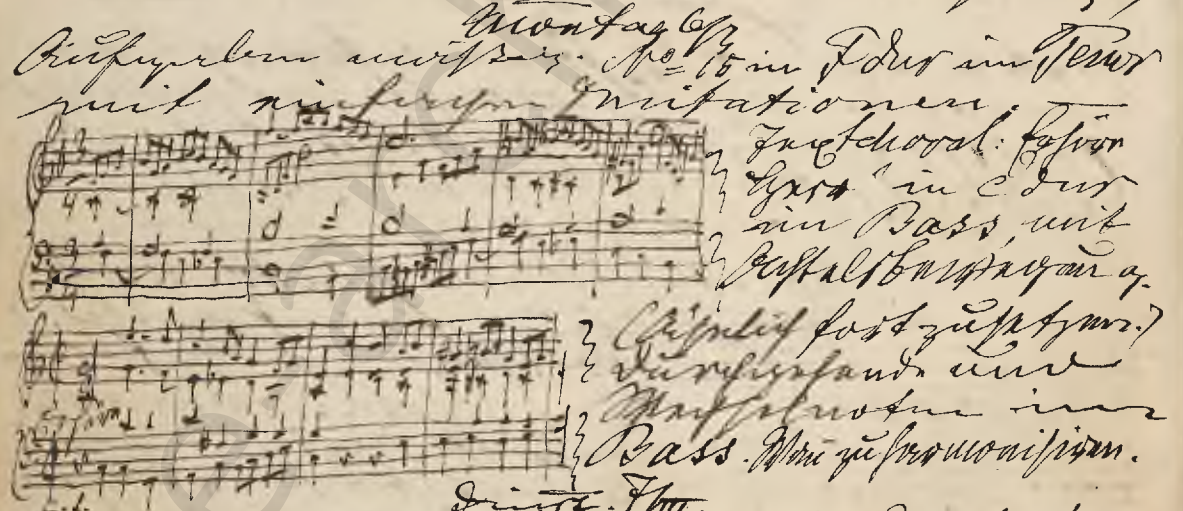 Montag 6/7
Aufgaben mäßig. No 15 in F dur im Tenor
mit einfachen Imitationen.
Textchoral: Erhöre
Herr" in C dur
im Bass mit
Achtelsbewegung
(Ähnlich fortzusetzen.)
Durchgehende und
Wechselnoten im
Bass. Neu zu harmonisiren.
Dienst. 7